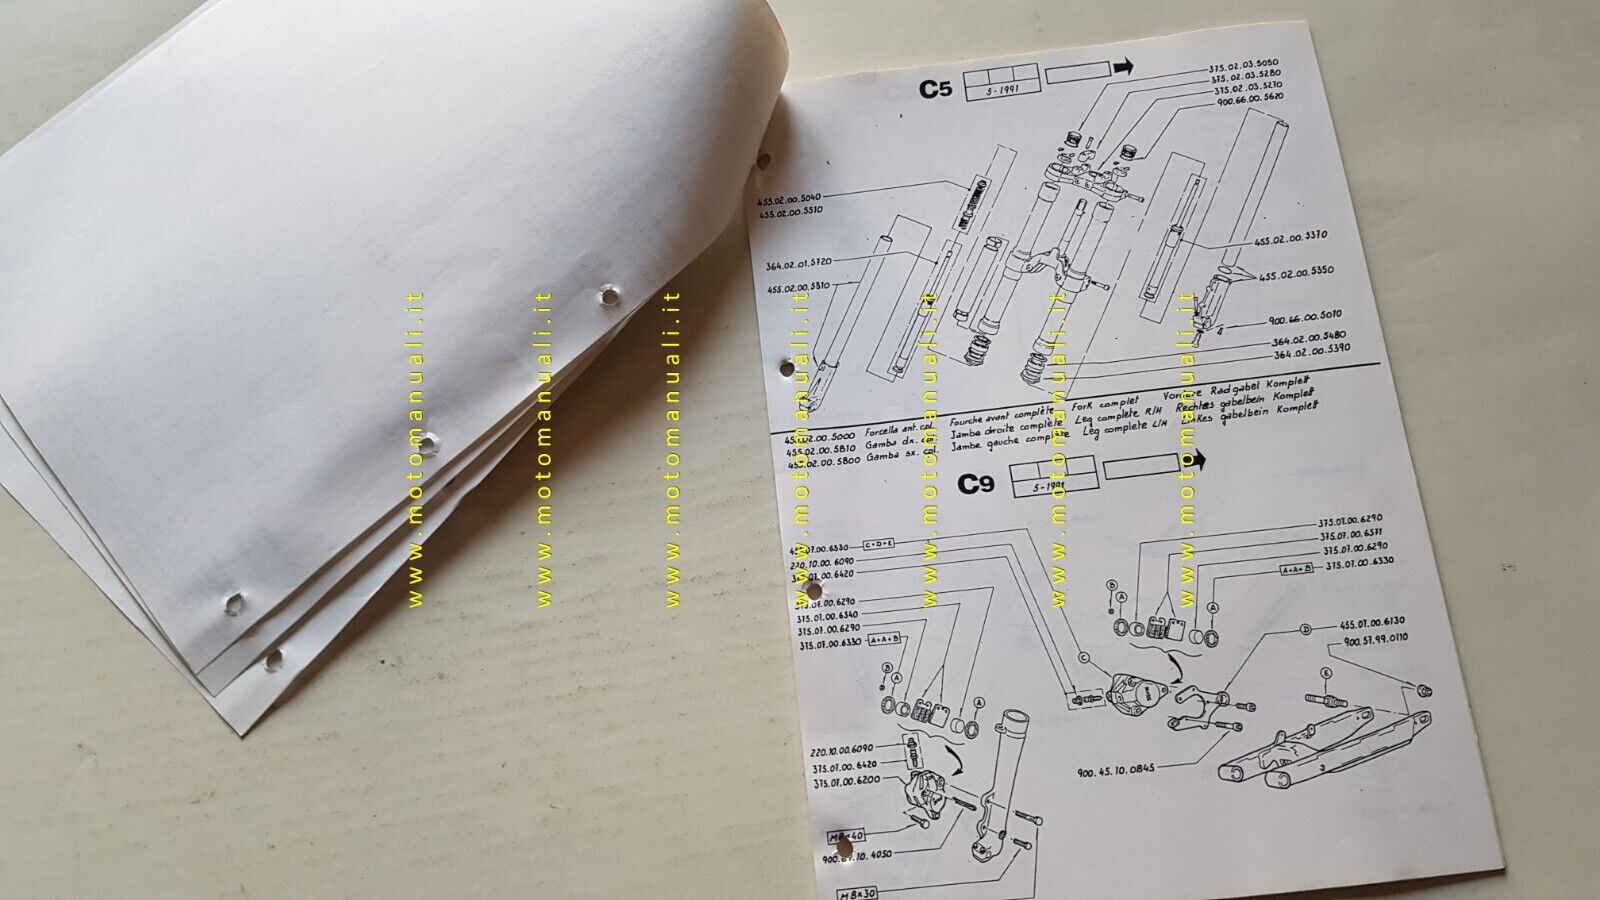 C5
5-1991
375.02.03.5050
375.02.03.5280
375.02.03.5270
900.66.00.5620
455.02.00.5040
455.02.00.5510
364.02.01.5720
455.02.00.5310
455.02.00.5370
455.02.00.5350
900.66.00.5010
364.02.00.5480
364.02.00.5390
455.02.00.5000 Forcella ant. cpl. Fourche avant complète Fork complet Vordere Radgabel Komplett
455.02.00.5810 Gamba dx. cpl. Jambe droite complète Leg complete R/H Rechtes gabelbein Komplett
455.02.00.5800 Gamba sx. cpl. Jambe gauche complète Leg complete L/H Linkes gabelbein Komplett
C9
5-1991
.07.00.6530 C+D+E
220.10.00.6090
375.07.00.6420
375.07.00.6290
375.07.00.6340
375.07.00.6290
375.07.00.6330 A+A+B
375.07.00.6290
375.07.00.6571
375.07.00.6290
A+A+B 375.07.00.6330
B
A
A
D
455.07.00.6130
900.57.99.0110
C
E
B
A
A
220.10.00.6090
375.07.00.6420
375.07.00.6200
900.45.10.0845
M8×40
900. .10.4050
M8×30
www.motomanuali.it
www.motomanuali.it
www.motomanuali.it
www.motomanuali.it
www.motomanuali.it
www.motomanuali.it
www.motomanuali.it